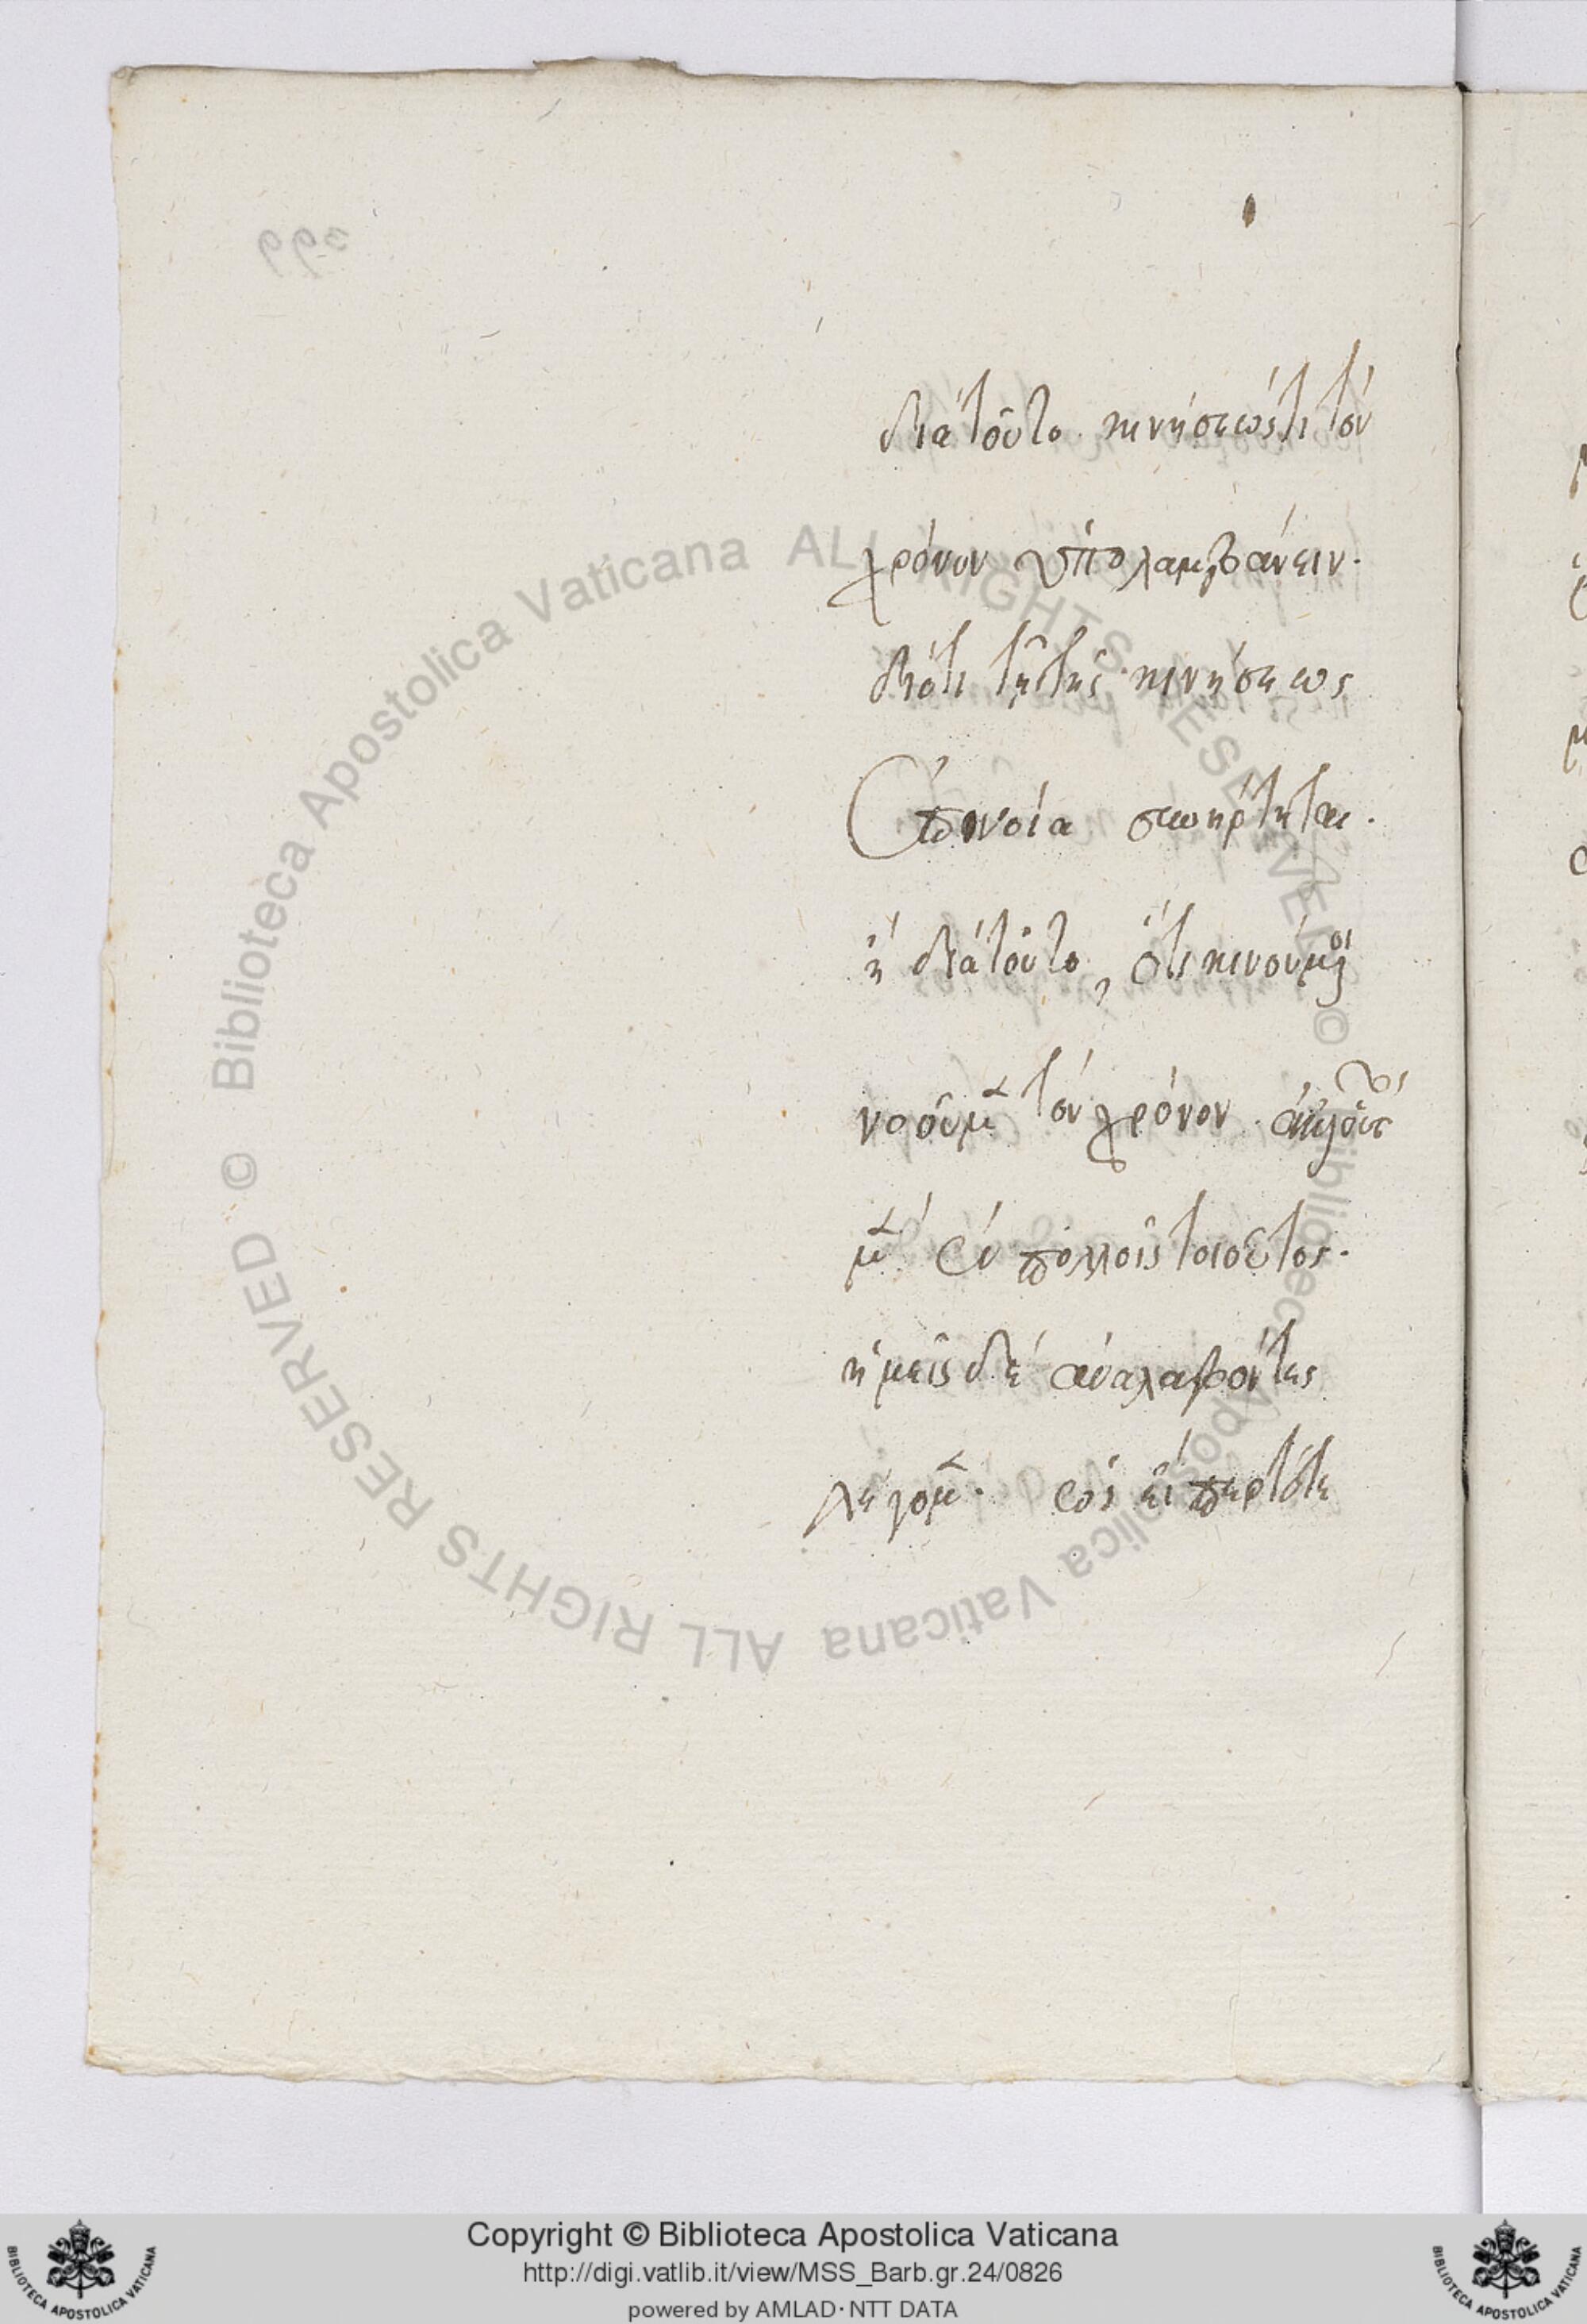 διὰ τοῦτο κινήσεώς τι τὸν
χρόνον ὑπολαμβάνειν.
διότι τῇ τῆς κινήσεως
ἐπινοία συνήρτηται.
ἢ διὰ τοῦτο, ὅτι κινούμενοι
νοοῦμεν τὸν χρόνον
μὲν ἐν πολλοῖς τοιοῦτος.
ἡμεῖς δὲ ἀναλαβόντες
λέγομεν. ὡς εἴπερ τότε
Biblioteca Apostolica Vaticana ALL RIGHTS RESERVED ©
Biblioteca Apostolica Vaticana ALL RIGHTS RESERVED ©
Copyright © Biblioteca Apostolica Vaticana
http://digi.vatlib.it/view/MSS_Barb.gr.24/0826
powered by AMLAD·NTT DATA
BIBLIOTECA APOSTOLICA VATICANA
BIBLIOTECA APOSTOLICA VATICANA